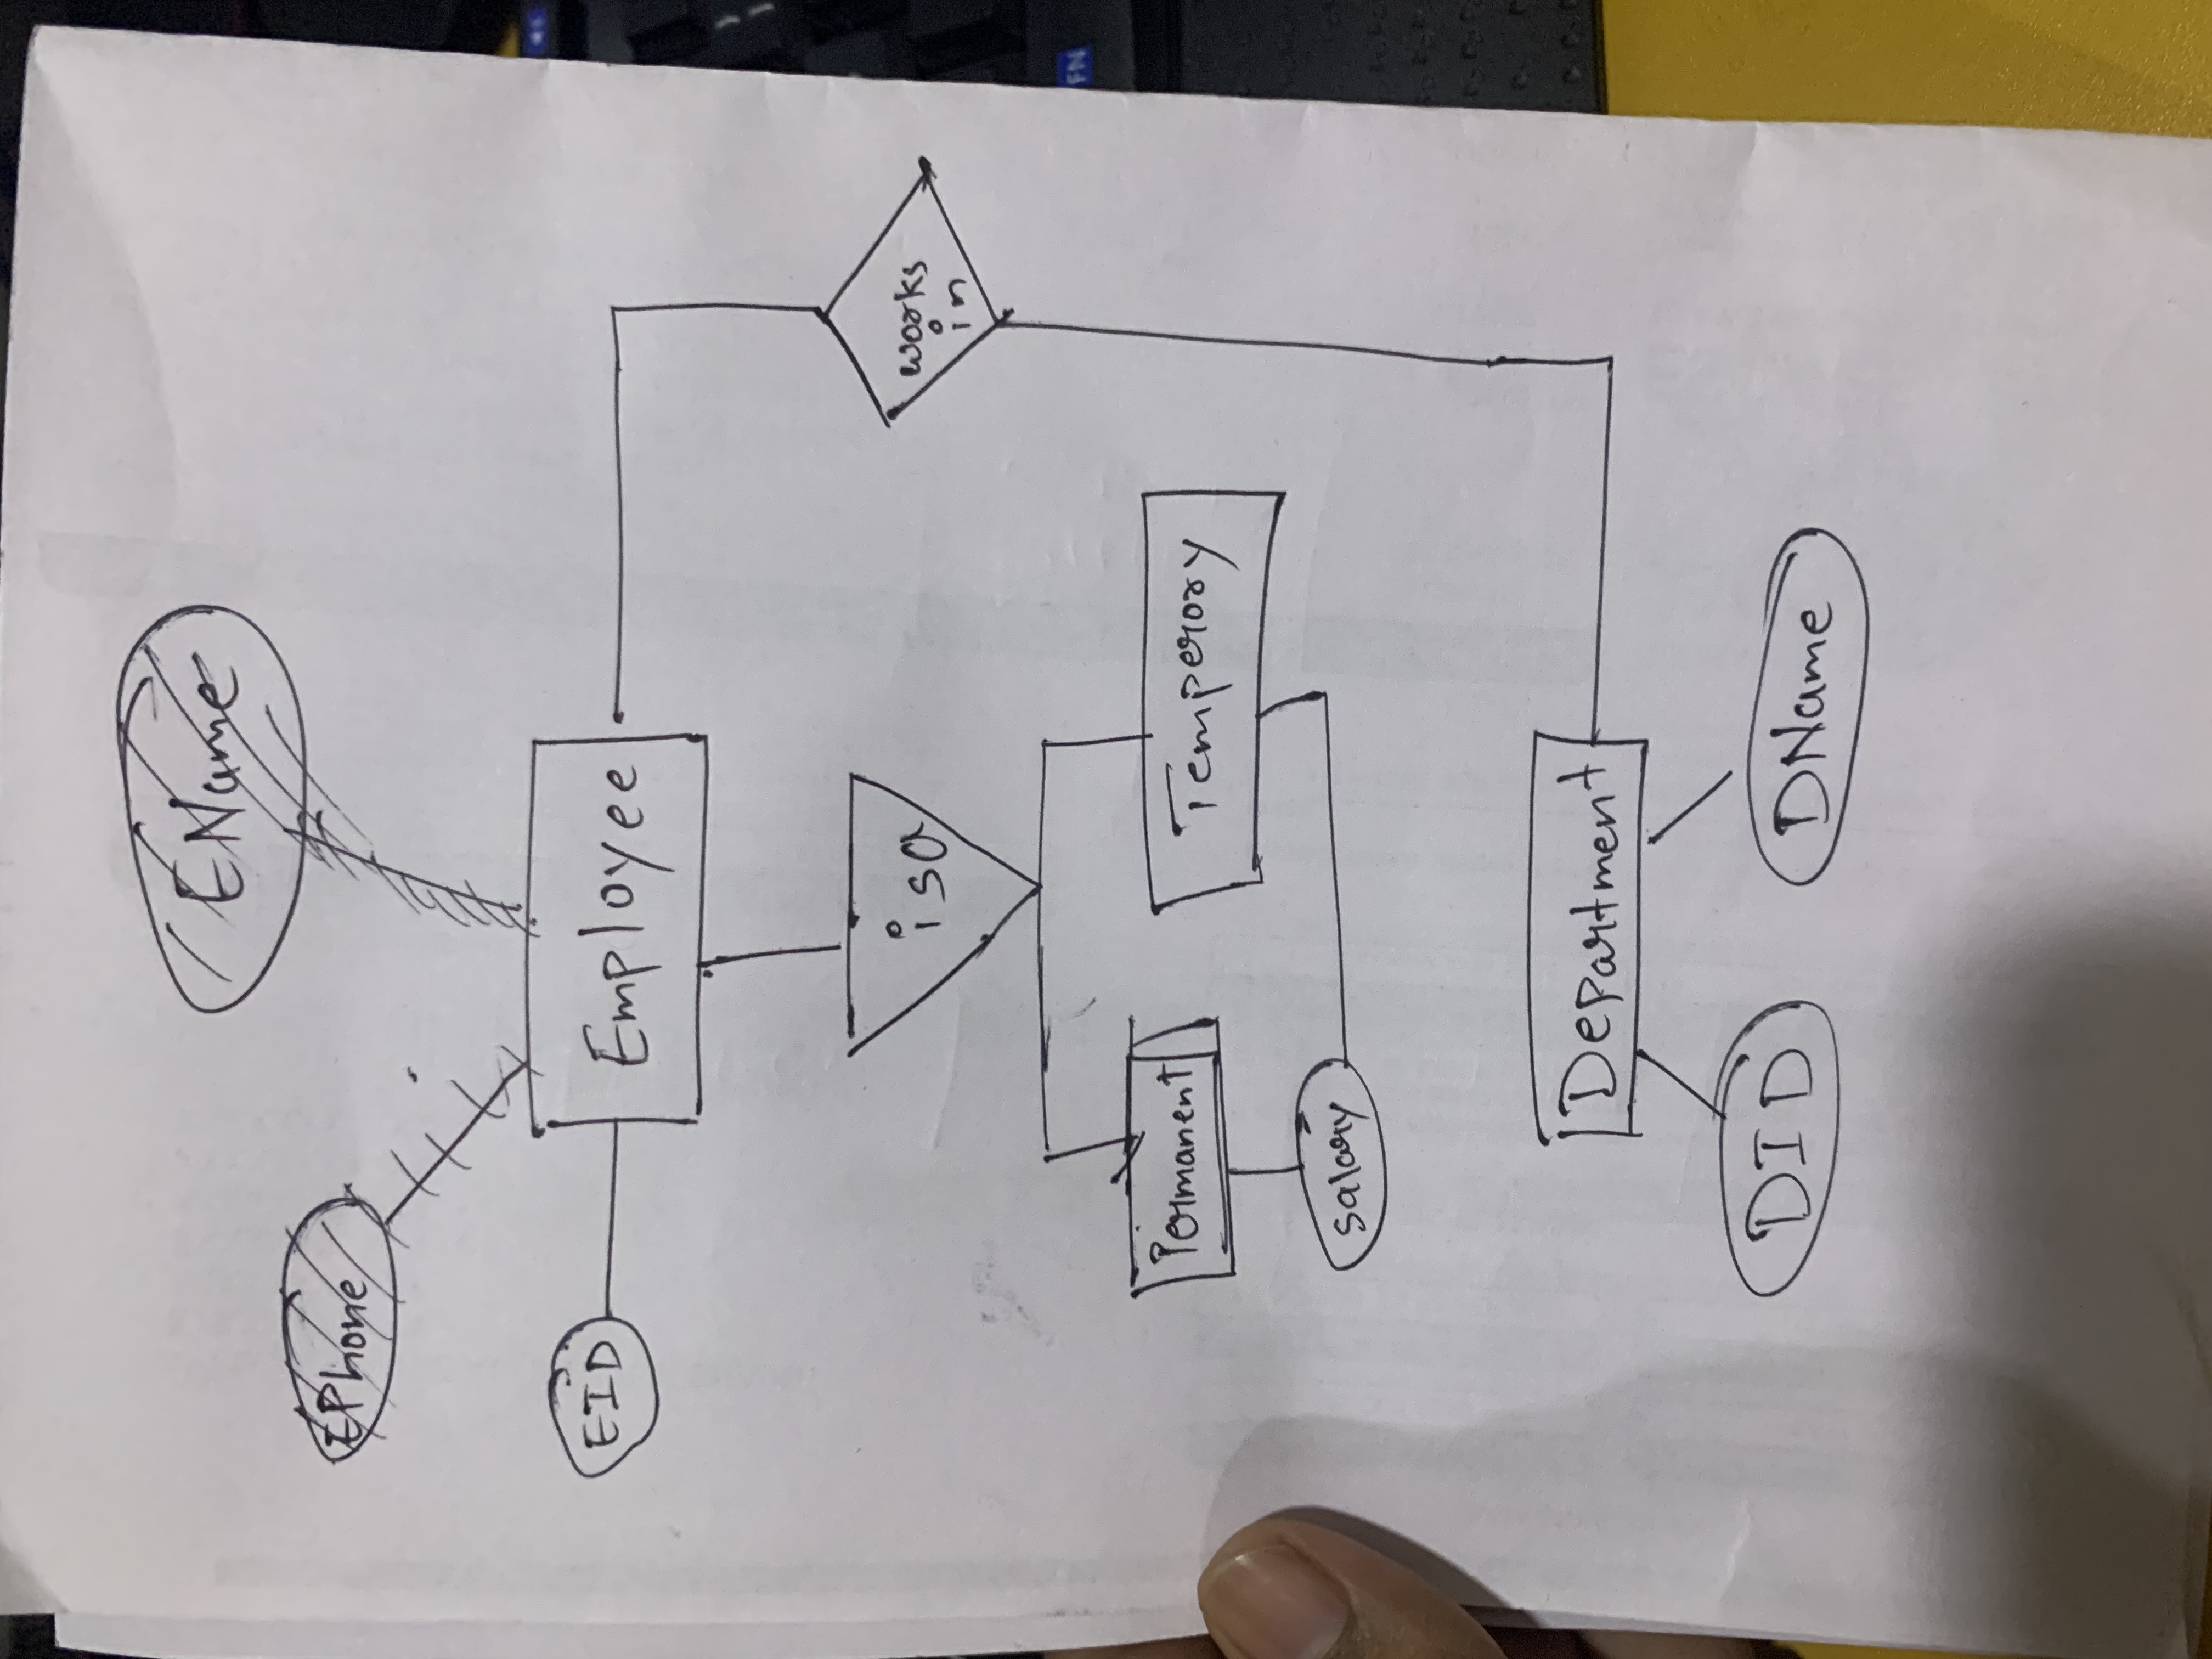 EName
EPhone
EID
Employee
isa
works
in
Permanent
Temperory
salary
Department
DID
DName
FN